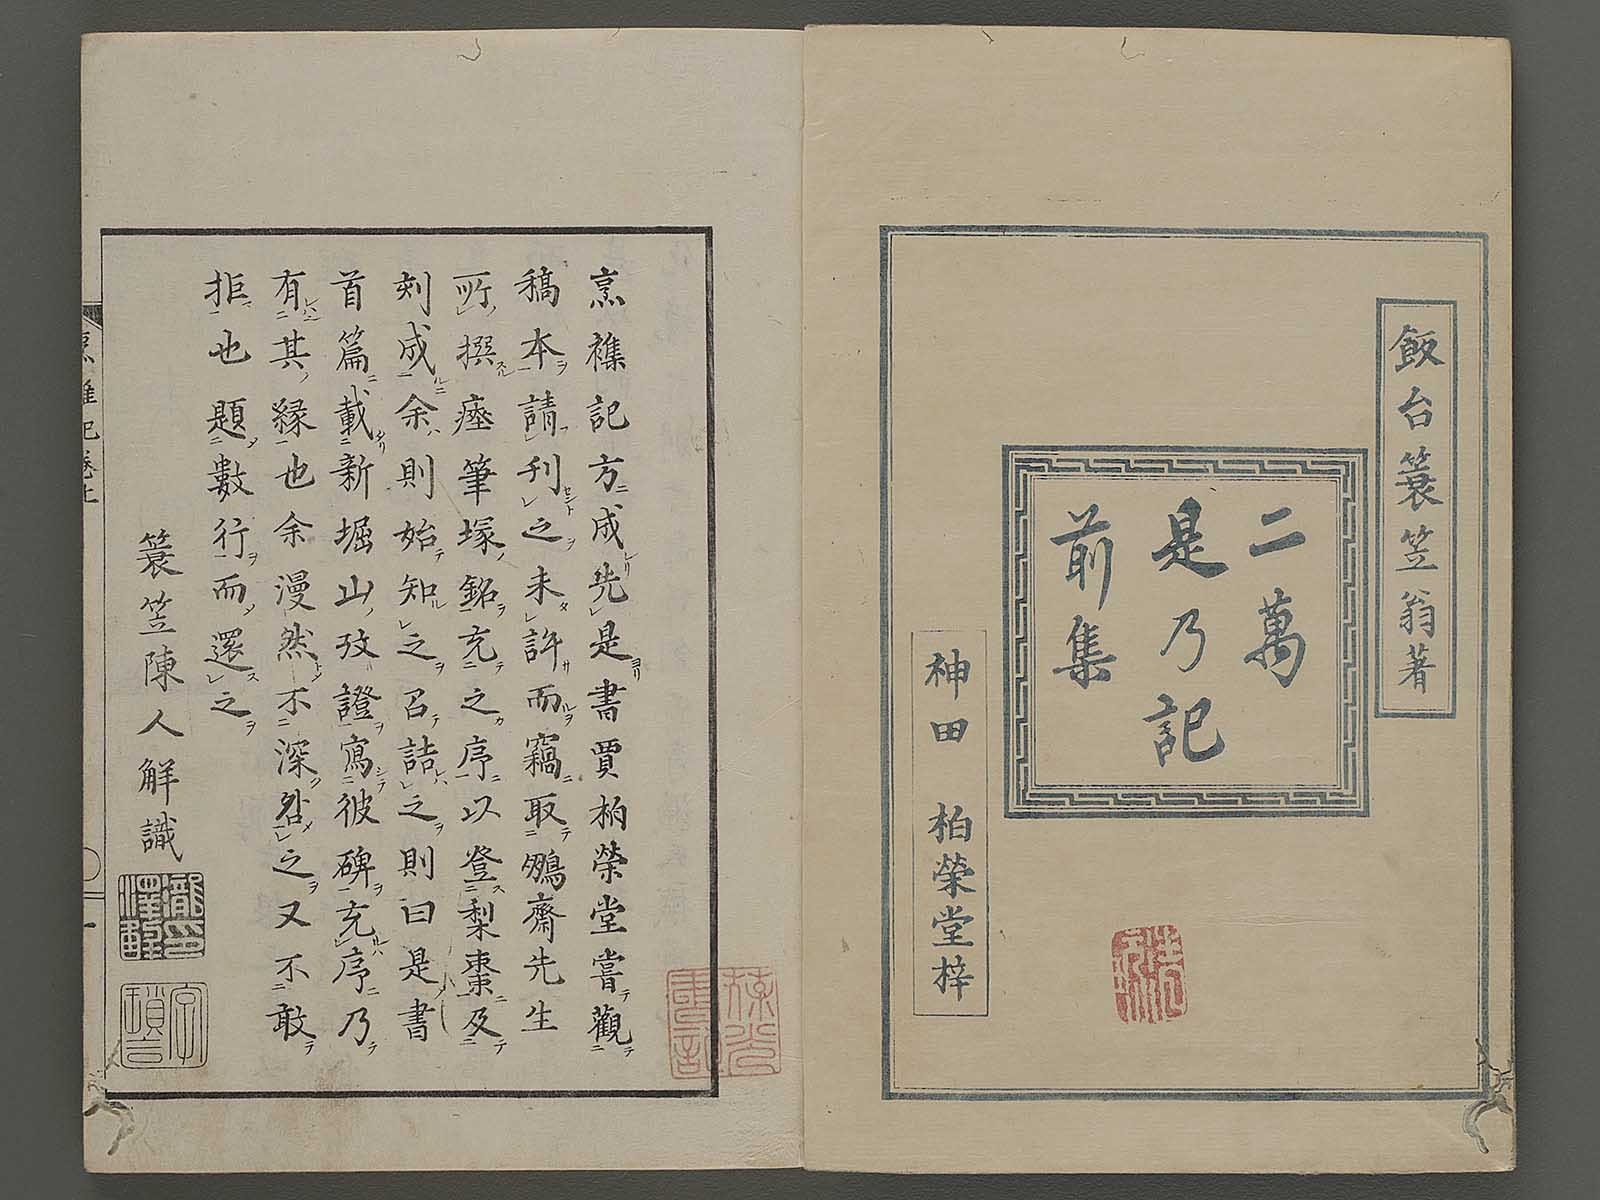 飯台簑笠翁著
二萬
是乃記
前集
神田 柏榮堂梓
烹襍記方成先是書賈柏榮堂嘗觀
稿本請刊之未許而竊取鵬齋先生
所撰瘞筆塚銘充之序以登梨棗及
刻成余則始知之召詰之則曰是書
首篇載新堀山攷證寫彼碑充序乃
有其縁也余漫然不深咎之又不敢
拒也題數行而還之
簑笠陳人解識